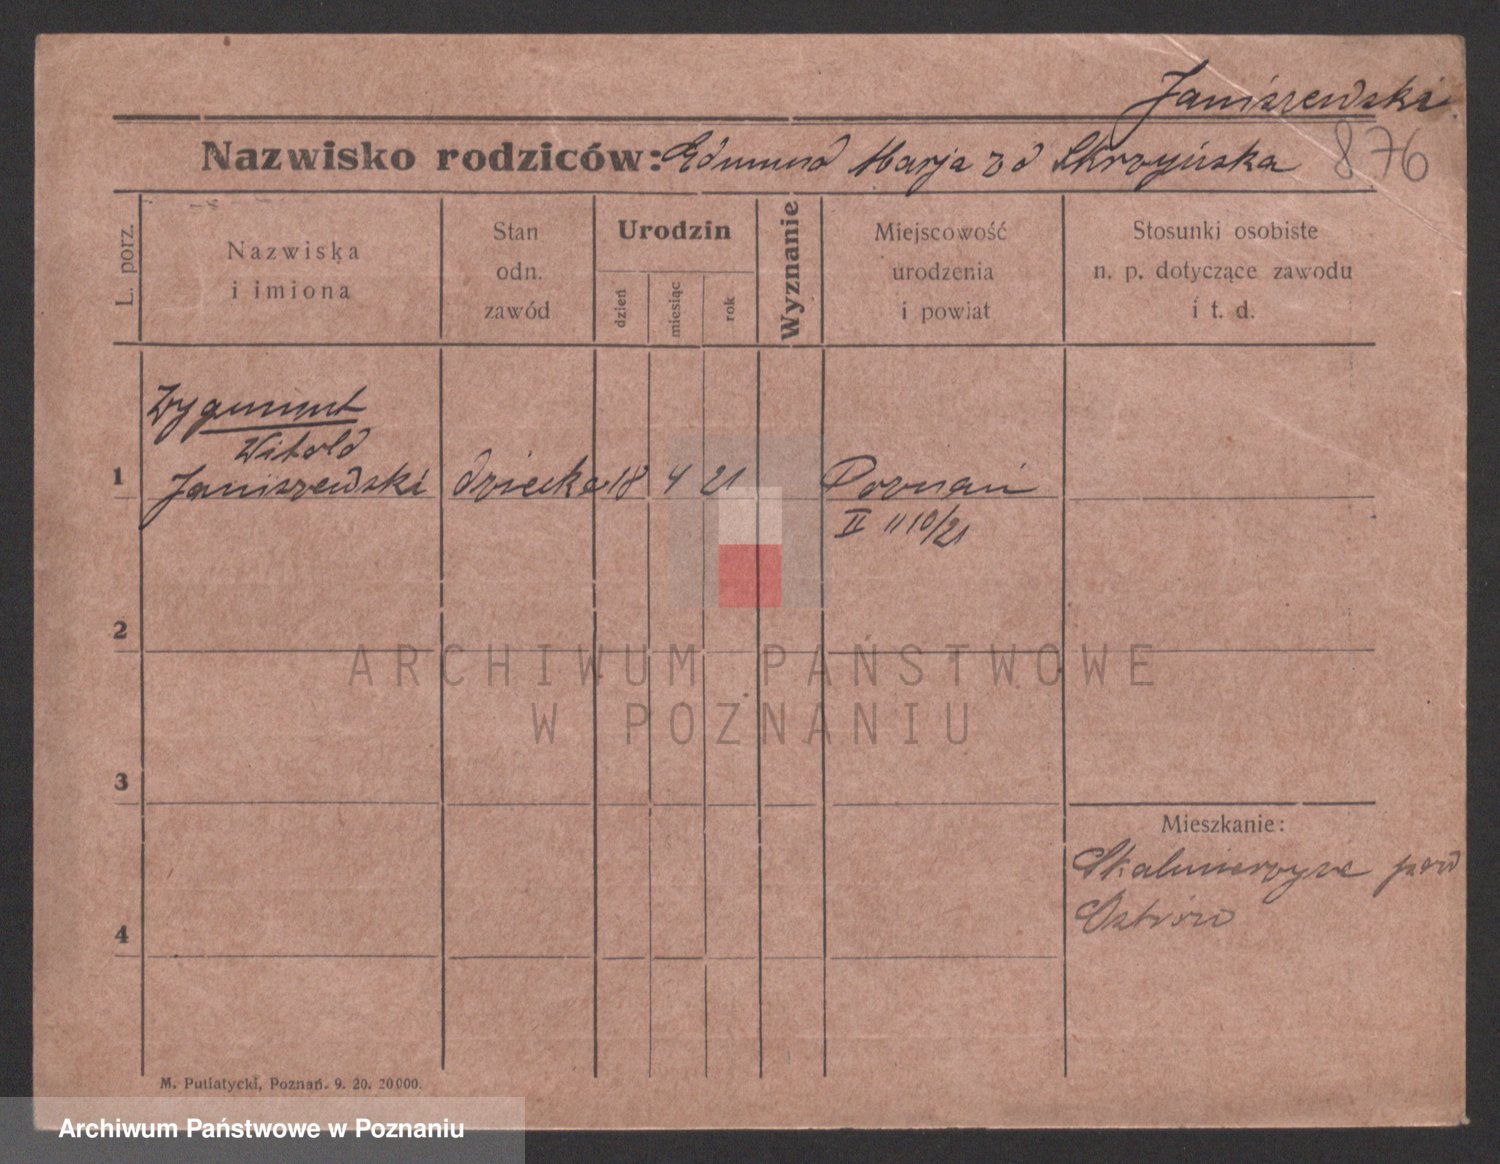 Janiszewski
Nazwisko rodziców: Edmund Marja zd Skrzyńska 876
L. porz.
Nazwiska
i imiona
Stan
odn.
zawód
Urodzin
dzień
miesiąc
rok
Wyznanie
Miejscowość
urodzenia
i powiat
Stosunki osobiste
n. p. dotyczące zawodu
i t. d.
Zygmunt
Witold
1 Janiszewski dziecko 18 4 21 Poznań
II 1110/21
2
ARCHIWUM PAŃSTWOWE
W POZNANIU
3
Mieszkanie:
Skalmierzyce pow
4 Ostrów
M. Putiatycki, Poznań. 9. 20. 20000.
Archiwum Państwowe w Poznaniu